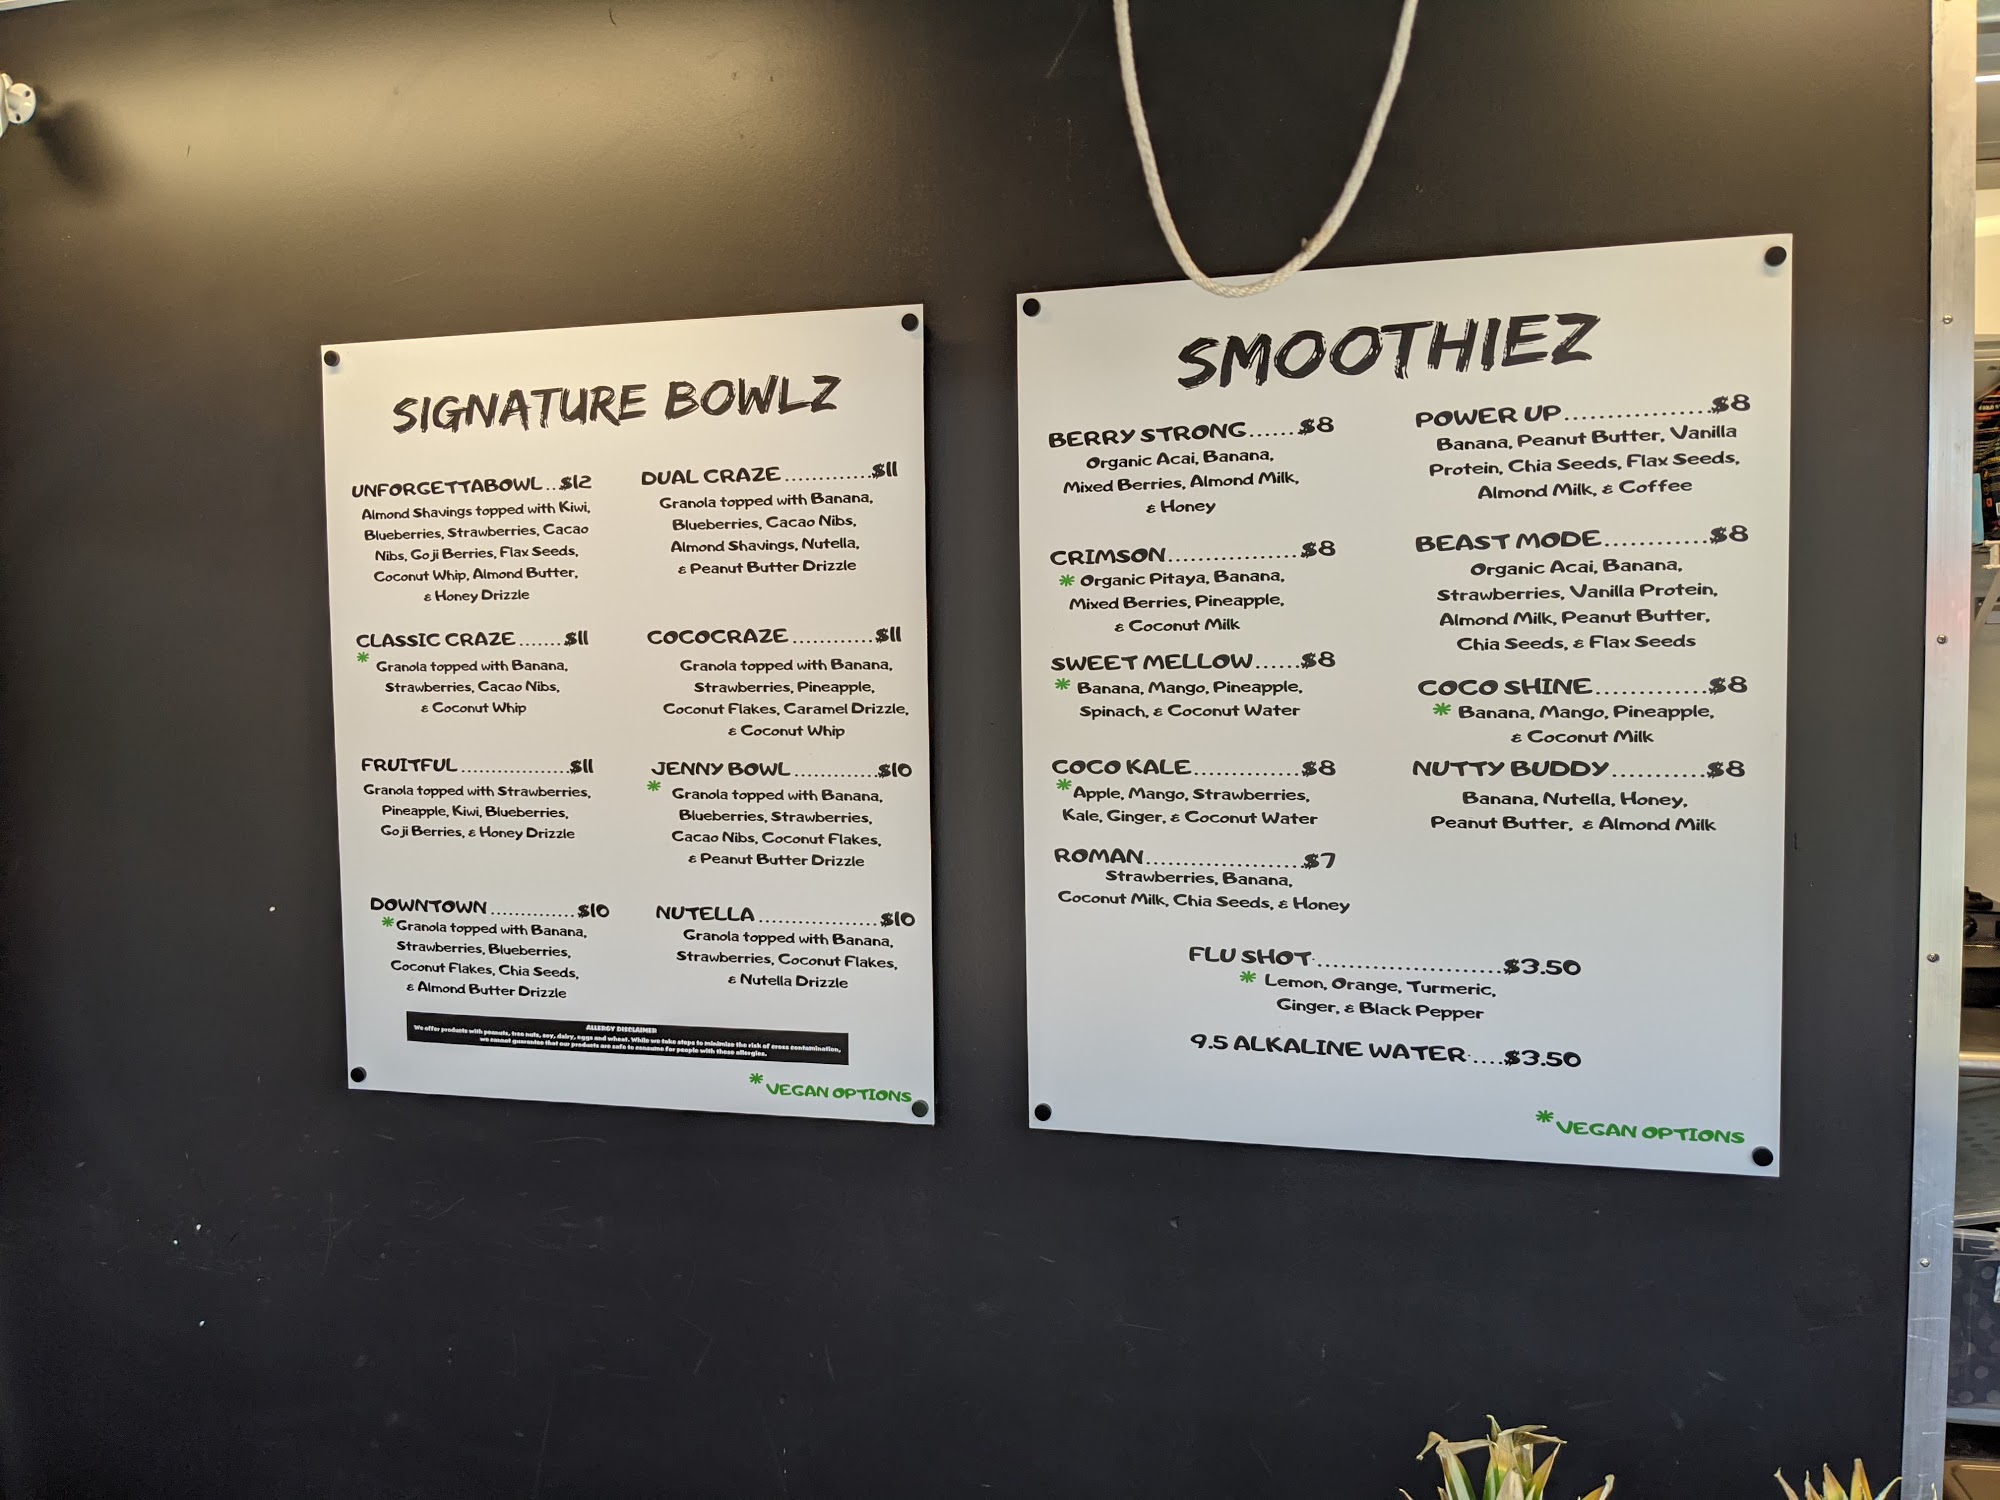 SIGNATURE BOWLZ
UNFORGETTABOWL..$12
Almond Shavings topped with Kiwi,
Blueberries, Strawberries, Cacao
Nibs, Goji Berries, Flax Seeds,
Coconut Whip, Almond Butter,
& Honey Drizzle
CLASSIC CRAZE.......$11
* Granola topped with Banana,
Strawberries, Cacao Nibs,
& Coconut Whip
FRUITFUL..................$11
Granola topped with Strawberries,
Pineapple, Kiwi, Blueberries,
Goji Berries, & Honey Drizzle
DOWNTOWN..............$10
* Granola topped with Banana,
Strawberries, Blueberries,
Coconut Flakes, Chia Seeds,
& Almond Butter Drizzle
DUAL CRAZE.............$11
Granola topped with Banana,
Blueberries, Cacao Nibs,
Almond Shavings, Nutella,
& Peanut Butter Drizzle
COCOCRAZE............$11
Granola topped with Banana,
Strawberries, Pineapple,
Coconut Flakes, Caramel Drizzle,
& Coconut Whip
JENNY BOWL............$10
* Granola topped with Banana,
Blueberries, Strawberries,
Cacao Nibs, Coconut Flakes,
& Peanut Butter Drizzle
NUTELLA..................$10
Granola topped with Banana,
Strawberries, Coconut Flakes,
& Nutella Drizzle
ALLERGY DISCLAIMER
We offer products with peanuts, tree nuts, soy, dairy, eggs and wheat. While we take steps to minimize the risk of cross contamination,
we cannot guarantee that our products are safe to consume for people with these allergies.
*VEGAN OPTIONS
SMOOTHIEZ
BERRY STRONG......$8
Organic Acai, Banana,
Mixed Berries, Almond Milk,
& Honey
CRIMSON.................$8
* Organic Pitaya, Banana,
Mixed Berries, Pineapple,
& Coconut Milk
SWEET MELLOW......$8
* Banana, Mango, Pineapple,
Spinach, & Coconut Water
COCO KALE..............$8
*Apple, Mango, Strawberries,
Kale, Ginger, & Coconut Water
ROMAN.....................$7
Strawberries, Banana,
Coconut Milk, Chia Seeds, & Honey
POWER UP.................$8
Banana, Peanut Butter, Vanilla
Protein, Chia Seeds, Flax Seeds,
Almond Milk, & Coffee
BEAST MODE............$8
Organic Acai, Banana,
Strawberries, Vanilla Protein,
Almond Milk, Peanut Butter,
Chia Seeds, & Flax Seeds
COCO SHINE.............$8
* Banana, Mango, Pineapple,
& Coconut Milk
NUTTY BUDDY..........$8
Banana, Nutella, Honey,
Peanut Butter, & Almond Milk
FLU SHOT........................$3.50
* Lemon, Orange, Turmeric,
Ginger, & Black Pepper
9.5 ALKALINE WATER.....$3.50
*VEGAN OPTIONS